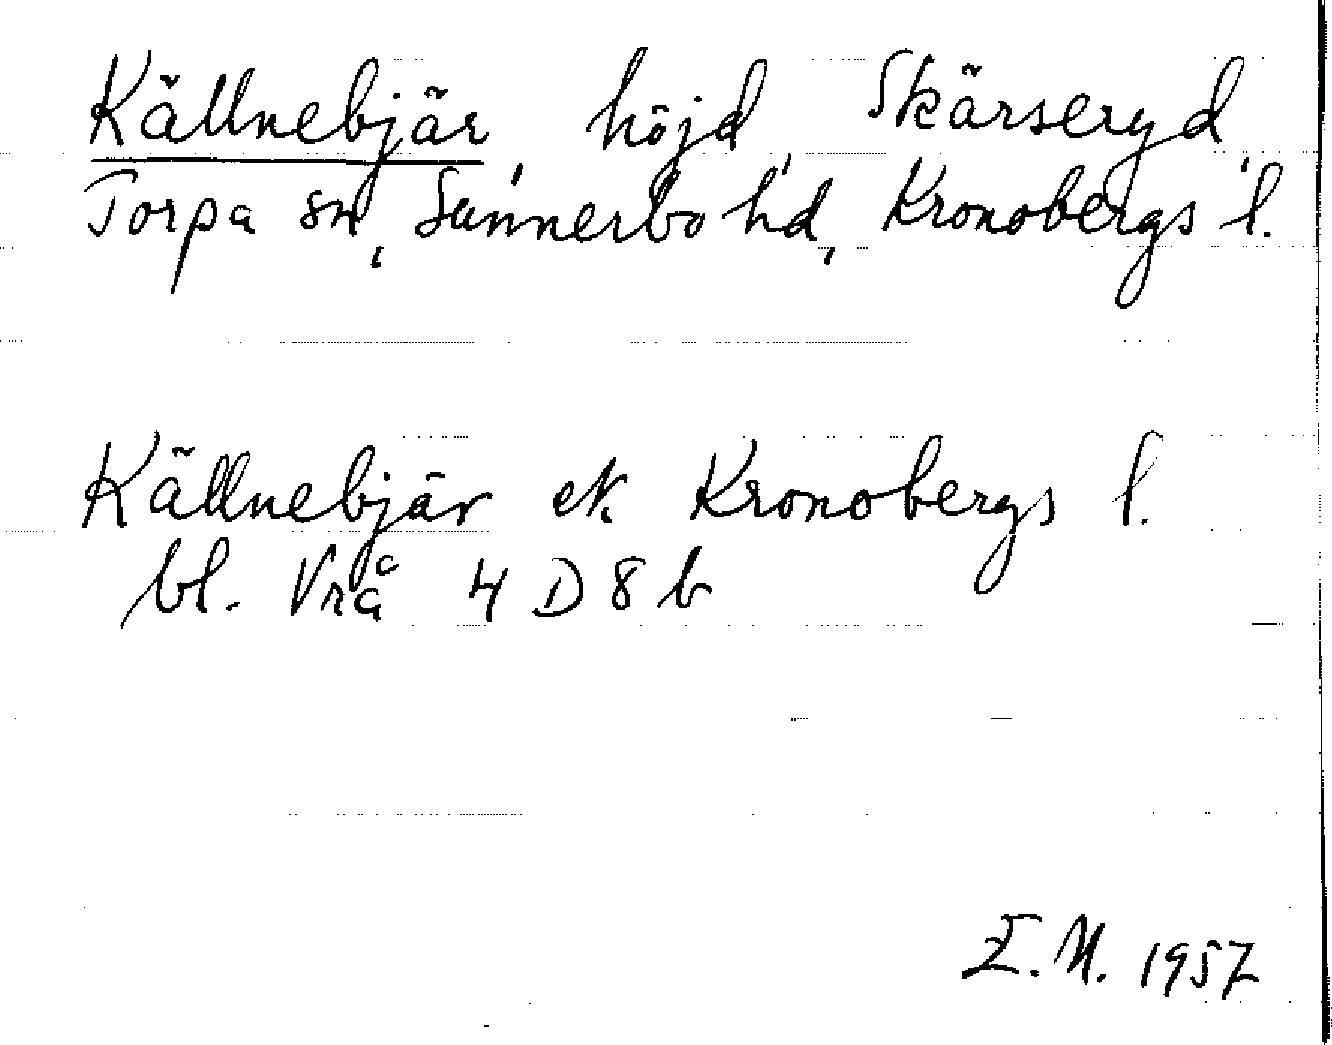 Källnebjär, höjd, Skärseryd,
Torpa sn, Sunnerbo hd, Kronobergs l.
Källnebjär ek. Kronobergs l.
bl. Vrå 4 D 8 b
E.N. 1957